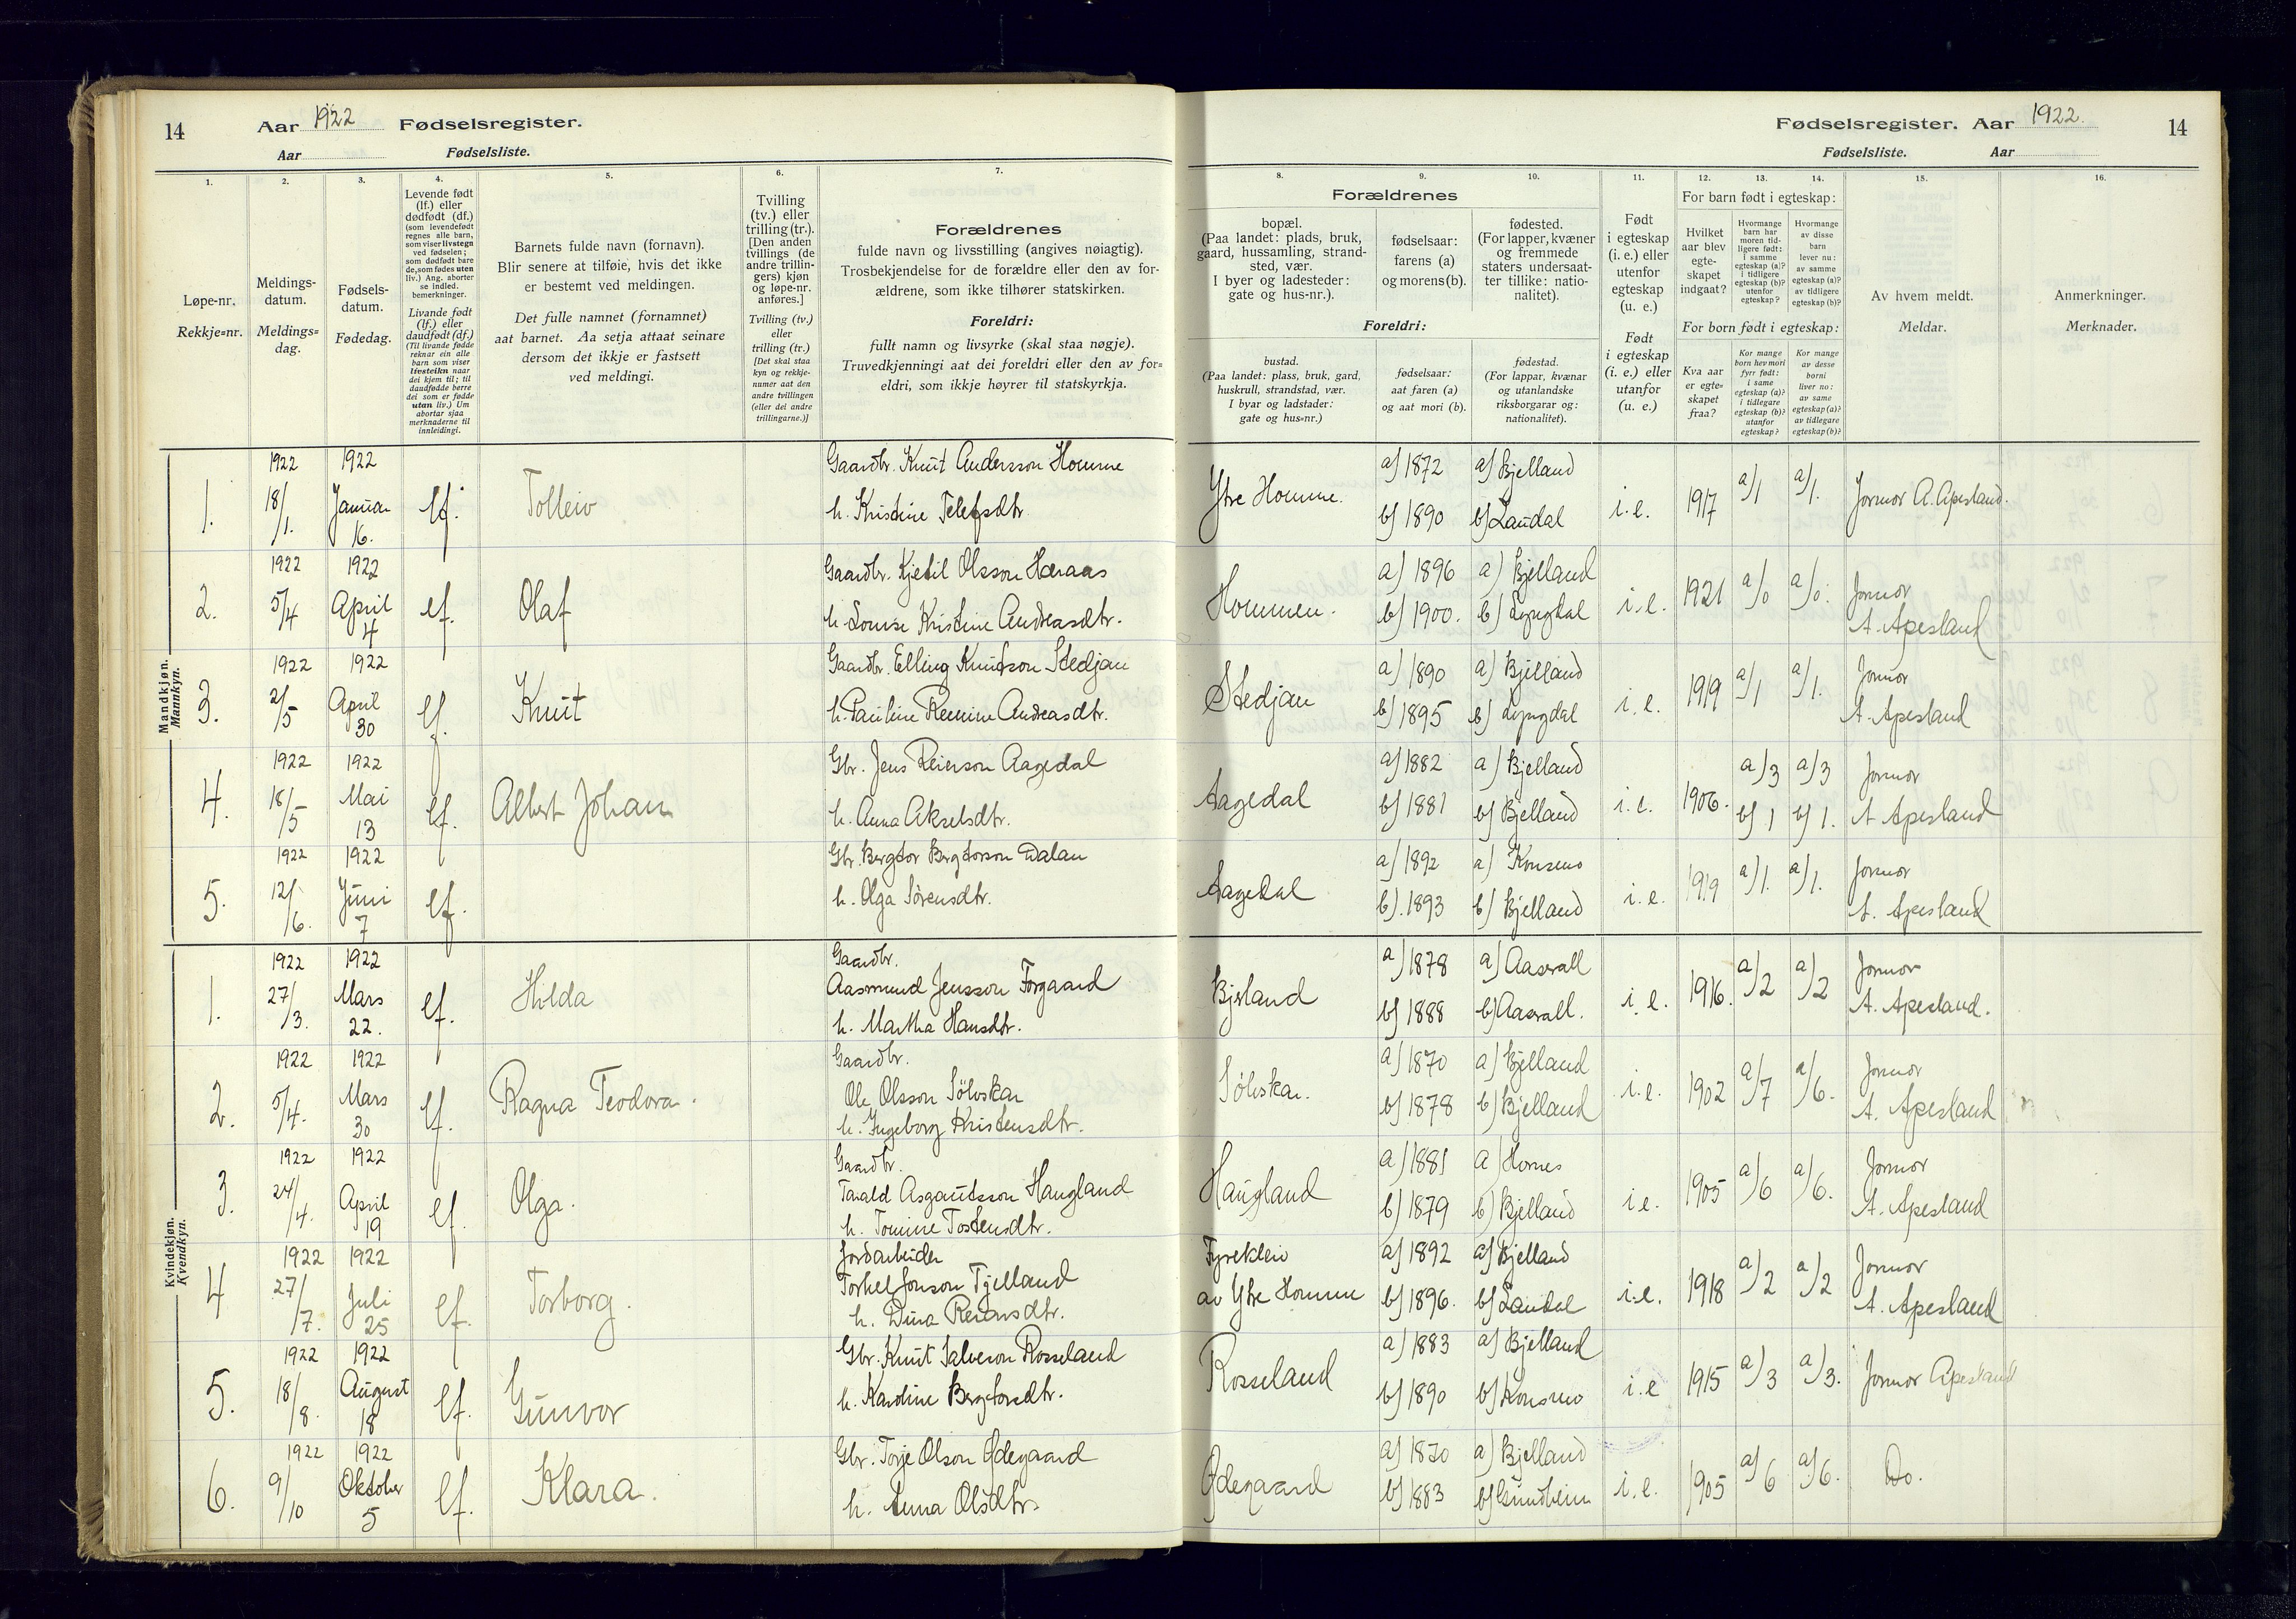 14
Aar 1922 Fødselsregister.
Aar Fødselsliste.
Fødselsregister. Aar 1922.
14
Fødselsliste. Aar
1.
2.
3.
4.
5.
6.
7.
8.
9.
10.
11.
12.
13.
14.
15.
16.
Løpe-nr.
Rekkje=nr.
Meldings-
datum.
Meldings=
dag.
Fødsels-
datum.
Fødedag.
Levende født
(lf.) eller
dødfødt (df.)
(som levendefødt
regnes alle barn,
som viser livstegn
ved fødselen;
som dødfødt bare
de, som fødes uten
liv.) Ang. aborter
se indled.
bemerkninger.
Livande født
(lf.) eller
daudfødt (df.)
(Til livande fødde
reknar ein alle
barn som viser
livsteikn naar
dei kjem til; til
daudfødde berre
dei som er fødde
utan liv.) Um
abortar sjaa
merknaderne til
innleidingi.
Barnets fulde navn (fornavn).
Blir senere at tilføie, hvis det ikke
er bestemt ved meldingen.
Det fulle namnet (fornamnet)
aat barnet. Aa setja attaat seinare
dersom det ikkje er fastsett
ved meldingi.
Tvilling
(tv.) eller
trilling (tr.).
[Den anden
tvillings (de
andre trillin-
gers) kjøn
og løpe-nr.
anføres.]
Tvilling (tv.)
eller
trilling (tr.)
[Det skal staa
kyn og rekkje-
numer aat den
andre tvillingen
(eller dei andre
trillingarne.)]
Forældrenes
fulde navn og livsstilling (angives nøiagtig).
Trosbekjendelse for de forældre eller den av for-
ældrene, som ikke tilhører statskirken.
Foreldri:
fullt namn og livsyrke (skal staa nøgje).
Truvedkjenningi aat dei foreldri eller den av for=
eldri, som ikkje høyrer til statskyrkja.
Forældrenes
bopæl.
(Paa landet: plads, bruk,
gaard, hussamling, strand-
sted, vær.
I byer og ladesteder:
gate og hus-nr.).
fødselsaar:
farens (a)
og morens (b).
fødested.
(For lapper, kvæner
og fremmede
staters undersaat-
ter tillike: natio-
nalitet).
Foreldri:
bustad.
(Paa landet: plass, bruk, gard,
huskrull, strandstad, vær.
I byar og ladstader:
gate og hus=nr.)
fødselsaar:
aat faren (a)
og aat mori (b).
fødestad.
(For lappar, kvænar
og utanlandske
riksborgarar og:
nationalitet).
Født
i egteskap
(i. e.) eller
utenfor
egteskap
(u. e.)
Født
i egteskap
(i. e.) eller
utanfor
(u. e.)
For barn født i egteskap:
Hvilket
aar blev
egte-
skapet
indgaat?
Hvormange
barn har
moren tid-
ligere født:
i samme
egteskap (a)?
i tidligere
egteskap (b)?
utenfor
egteskap?
Hvormange
av disse
barn
lever nu:
av samme
egteskap (a)?
av tidligere
egteskap (b)?
For born født i egteskap:
Kva aar
er egte=
skapet
fraa?
Kor mange
born hev mori
fyrr født:
i same
egteskap (a)?
i tidlegare
egteskap (b)?
utanfor
egteskap?
Kor mange
av desse
borni
liver no:
av same
egteskap (a)?
av tidlegare
egteskap (b)?
Av hvem meldt.
Meldar.
Anmerkninger.
Merknader.
Mandkjøn.
Mannkyn.
1. 1922 18/1. 1922 Januar 16. lf. Tolleiv Gaardbr. Knut Andersson Homme h. Kristine Telefsdtr Ytre Homme. a) 1872 b) 1890 a) Bjelland b) Laudal i.e. 1917 a/1 a/1. Jormor A. Apesland.
2. 1922 5/4 1922 April 4 lf. Olaf Gaardbr. Kjetil Olsson Høraas h. Lovise Kristine Andreasdtr. Hommen. a) 1896 b) 1900. a) Bjelland b) Lyngdal i.e. 1921 a/0 a/0. Jormor A. Apesland
3. 1922 2/5 1922 April 30 lf. Knut Gaardbr. Elling Knutson Stedjan h. Pauline Reinine Andreasdtr. Stedjan a) 1890 b) 1895 a) Bjelland b) Lyngdal i.e. 1919 a/1 a/1. Jormor A. Apesland
4. 1922 18/5 1922 Mai 13 lf. Albert Johan Gbr. Jens Reierson Aagedal h. Anna Akselsdtr. Aagedal a) 1882 b) 1881 a) Bjelland b) Bjelland i.e. 1906. a/3 b) 1 a/3 b) 1. Jormor A Apesland
5. 1922 12/6. 1922 Juni 7 lf. Gbr. Bergtor Bergtorson Dalan h. Olga Sørensdtr. Aagedal a) 1892 b). 1893 a) Konsmo b) Bjelland i.e. 1919 a/1. a/1. Jormor A. Apesland
Kvindekjøn.
Kvendkyn.
1. 1922 27/3. 1922 Mars 22. lf. Hilda Gaardbr. Aasmund Jensson Forgaard h. Martha Hansdtr. Bjerland a) 1878 b) 1888 a) Aaserall b) Aaserall. i.e. 1916. a/2 a/2 Jormor A. Apesland.
2. 1922 5/4. 1922 Mars 30 lf. Ragna Teodora. Gaardbr. Ole Olsson Sölvskar h. Ingeborg Kristensdtr. Sölvskar. a) 1870 b) 1878 a) Bjelland b) Bjelland i.e. 1902 a/7 a/6. Jormor A. Apesland
3. 1922 24/4. 1922 April 19 lf. Olga. Gaardbr. Tarald Asgautsson Haugland h. Tomine Tostensdtr. Haugland a) 1881 b) 1879 a) Hornes b) Bjelland i.e. 1905 a/6 a/6. Jormor A. Apesland
4 1922 27/7. 1922 Juli 25 lf. Torborg. Jordarbeider Torkel Jonson Tjelland h. Dina Reiersdtr. Fyrekleiv av Ytre Homme a) 1892 b) 1896. a) Bjelland b) Laudal i.e. 1918 a/2 a/2 Jormor A. Apesland
5. 1922 18/8. 1922 August 18 lf. Gunvor Gbr. Knut Salveson Rosseland h. Karoline Bergtorsdtr. Rosseland a) 1883 b) 1890 a) Bjelland b) Konsmo i.e 1915 a/3 a/3. Jormor Apesland
6. 1922 9/10 1922 Oktober 5 lf. Klara. Gbr. Torje Olson Ødegaard h. Anna Olsdtr. Ødegaard a) 1870 b) 1883 a) Bjelland b) Grindheim i.e. 1905 a/6 a/6. Do.